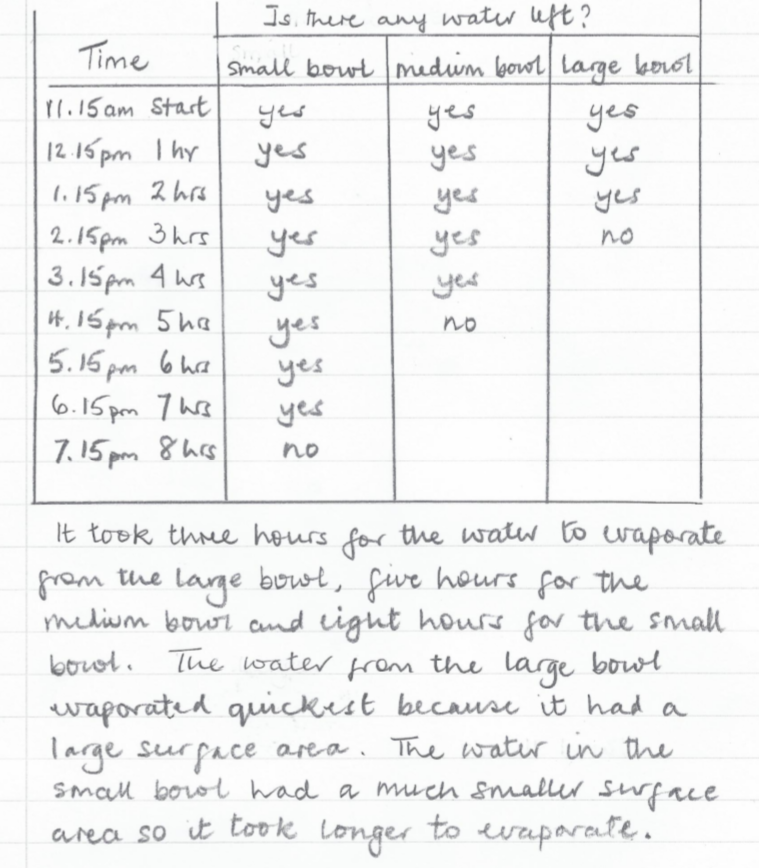 Is there any water left?
Time small bowl medium bowl large bowl
11.15am Start yes yes yes
12.15pm 1 hr yes yes yes
1.15pm 2 hrs yes yes yes
2.15pm 3 hrs yes yes no
3.15pm 4 hrs yes yes
4.15pm 5 hrs yes no
5.15pm 6 hrs yes
6.15pm 7 hrs yes
7.15pm 8 hrs no
It took three hours for the water to evaporate
from the large bowl, five hours for the
medium bowl and eight hours for the small
bowl. The water from the large bowl
evaporated quickest because it had a
large surface area. The water in the
small bowl had a much smaller surface
area so it took longer to evaporate.